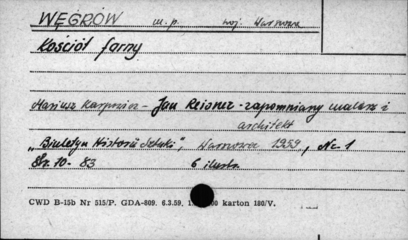 WĘGRÓW m.p. woj. Warszawa
Kościół farny
Mariusz Karpowicz - Jan Reisner - zapomniany malarz i
architekt
„Biuletyn Historii Sztuki", Warszawa 1959, Nr 1
Str. 10 - 83 6 ilustr.
CWD B-15b Nr 515/P. GDA-809. 6.3.59, karton 180/V.